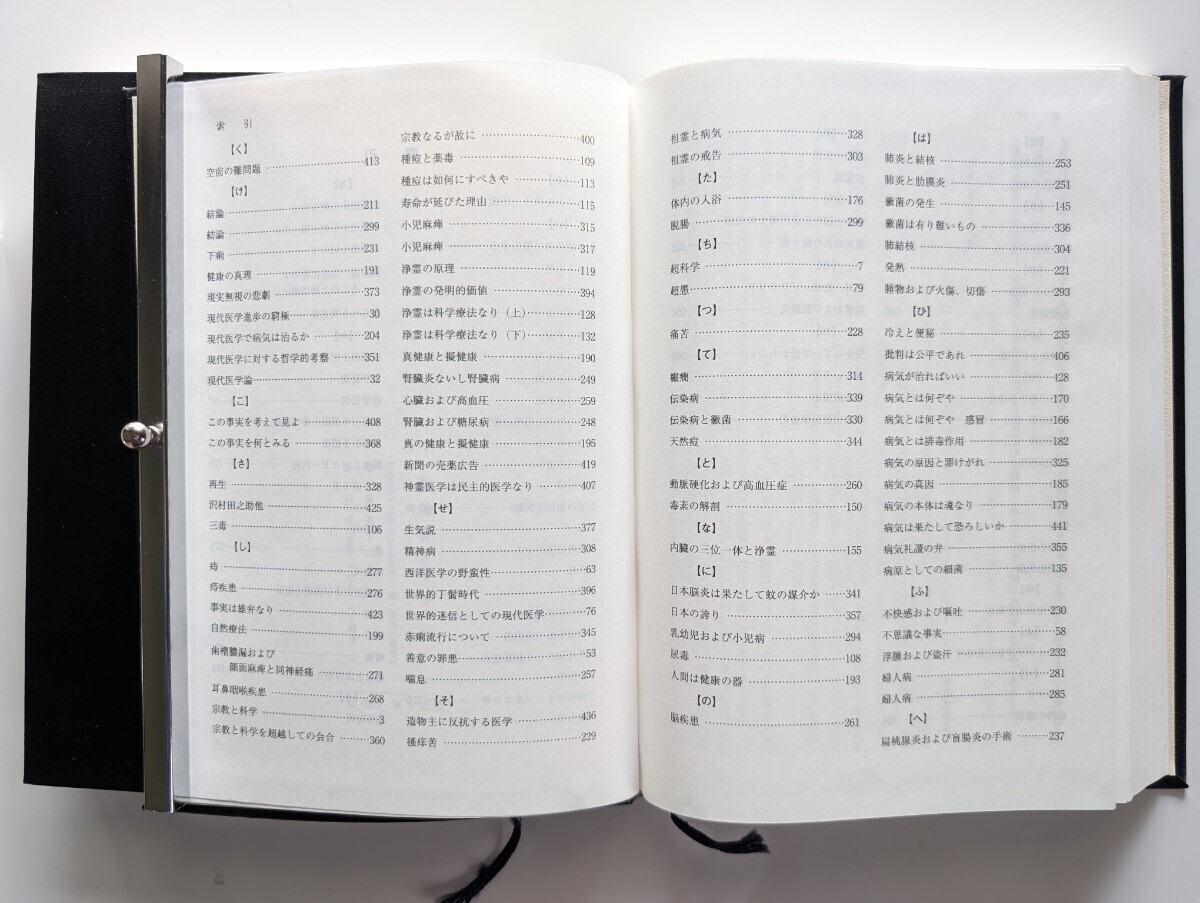 索　引
【く】
空前の難問題 …… 413
【け】
結論 …… 211
結論 …… 299
下痢 …… 231
健康の真理 …… 191
現実無視の悲劇 …… 373
現代医学進歩の窮極 …… 30
現代医学で病気は治るか …… 204
現代医学に対する哲学的考察 …… 351
現代医学論 …… 32
【こ】
この事実を考えて見よ …… 408
この事実を何とみる …… 368
【さ】
再生 …… 328
沢村田之助他 …… 425
三毒 …… 106
【し】
痔 …… 277
痔疾患 …… 276
事実は雄弁なり …… 423
自然療法 …… 199
歯槽膿漏および
顔面麻痺と同神経痛 …… 271
耳鼻咽喉疾患 …… 268
宗教と科学 …… 3
宗教と科学を超越しての会合 …… 360
宗教なるが故に …… 400
種痘と薬毒 …… 109
種痘は如何にすべきや …… 113
寿命が延びた理由 …… 115
小児麻痺 …… 315
小児麻痺 …… 317
浄霊の原理 …… 119
浄霊の発明的価値 …… 394
浄霊は科学療法なり（上） …… 128
浄霊は科学療法なり（下） …… 132
真健康と擬健康 …… 190
腎臓炎ないし腎臓病 …… 249
心臓および高血圧 …… 259
腎臓および糖尿病 …… 248
真の健康と擬健康 …… 195
新聞の売薬広告 …… 419
神霊医学は民主的医学なり …… 407
【せ】
生気説 …… 377
精神病 …… 308
西洋医学の野蛮性 …… 63
世界的丁髷時代 …… 396
世界的迷信としての現代医学 …… 76
赤痢流行について …… 345
善意の罪悪 …… 53
喘息 …… 257
【そ】
造物主に反抗する医学 …… 436
掻痒苦 …… 229
祖霊と病気 …… 328
祖霊の戒告 …… 303
【た】
体内の入浴 …… 176
脱腸 …… 299
【ち】
超科学 …… 7
超愚 …… 79
【つ】
痛苦 …… 228
【て】
癲癇 …… 314
伝染病 …… 339
伝染病と黴菌 …… 330
天然痘 …… 344
【と】
動脈硬化および高血圧症 …… 260
毒素の解剖 …… 150
【な】
内臓の三位一体と浄霊 …… 155
【に】
日本脳炎は果たして蚊の媒介か …… 341
日本の誇り …… 357
乳幼児および小児病 …… 294
尿毒 …… 108
人間は健康の器 …… 193
【の】
脳疾患 …… 261
【は】
肺炎と結核 …… 253
肺炎と肋膜炎 …… 251
黴菌の発生 …… 145
黴菌は有り難いもの …… 336
肺結核 …… 304
発熱 …… 221
腫物および火傷、切傷 …… 293
【ひ】
冷えと便秘 …… 235
批判は公平であれ …… 406
病気が治ればいい …… 428
病気とは何ぞや …… 170
病気とは何ぞや　感冒 …… 166
病気とは排毒作用 …… 182
病気の原因と罪けがれ …… 325
病気の真因 …… 185
病気の本体は魂なり …… 179
病気は果たして恐ろしいか …… 441
病気礼讃の弁 …… 355
病原としての細菌 …… 135
【ふ】
不快感および嘔吐 …… 230
不思議な事実 …… 58
浮腫および盗汗 …… 232
婦人病 …… 281
婦人病 …… 285
【へ】
扁桃腺炎および盲腸炎の手術 …… 237